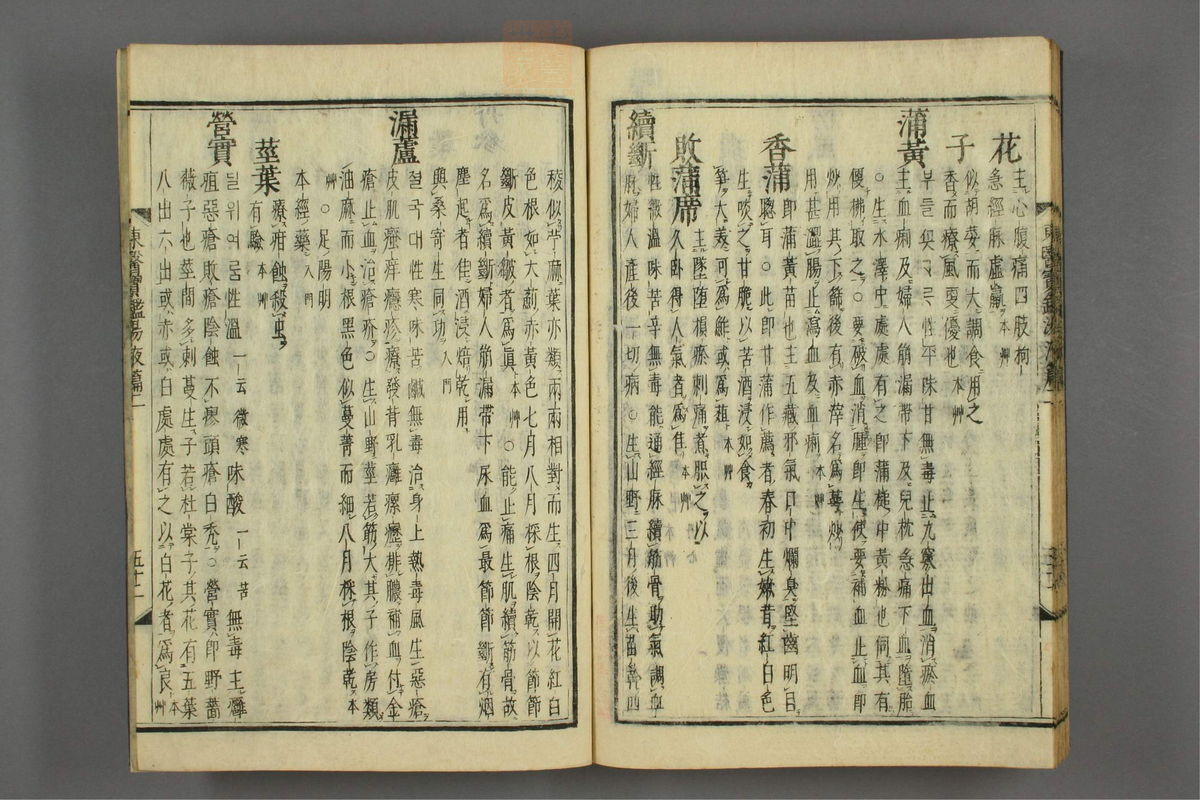 花 主心腹痛四肢拘
急經脉虛羸 本艸
子 似胡荽而大調食用之
香而療風更優也 本艸
蒲黃 부들 性平味甘無毒止九竅出血消瘀血
主血痢及婦人崩漏帶下及兒枕急痛下血墮胎
○生水澤中處處有之即蒲槌中黃粉也伺其有
便拂取之○要破血消腫即生使要補血止血即
炒用其下篩後有赤滓名爲萼炒
用甚澁腸止瀉血及血痢 本艸
香蒲 即蒲黃苗也主五藏邪氣口中爛臭堅齒明目
聰耳○此即甘蒲作薦者春初生嫩昔紅白色
生啖之甘脆以苦酒浸如食
笋大美可爲鮓或爲葅 本艸
敗蒲席 主墜墮損瘀刺痛煮服之以
久卧得人氣者爲佳 本艸
續斷 性微溫味苦辛無毒能通經脉續筋骨助氣調血
脉婦人產後一切病○生山野三月後生苗幹四
稜似苧麻葉亦類兩兩相對而生四月開花紅白
色根如大薊赤黃色七月八月採根陰乾以節節
斷皮黃皺者爲眞 本艸 ○能止痛生肌續筋骨故
名爲續斷婦人崩漏帶下尿血爲最節節斷有烟
塵起者佳酒浸焙乾用
與桑寄生同功 入門
漏蘆 절국대 性寒味苦鹹無毒治身上熱毒風生惡瘡
皮肌瘙痒癮疹療發背乳癰瘰癧排膿補血付金
瘡止血治瘡疥○生山野莖若筯大其子作房類
油麻而小根黑色似蔓菁而細八月採根陰乾 本
艸 ○足陽明
本經藥 入門
莖葉 療疳蝕殺虫
有驗 本艸
營實 딜위여름 性溫 一云微寒 味酸 一云苦 無毒主癰
疽惡瘡敗瘡陰蝕不瘳頭瘡白禿○營實即野薔
薇子也莖間多刺蔓生子若杜棠子其花有五葉
八出六出或赤或白處處有之以白花者爲良 本艸
東醫寶鑑湯液篇二
五十二